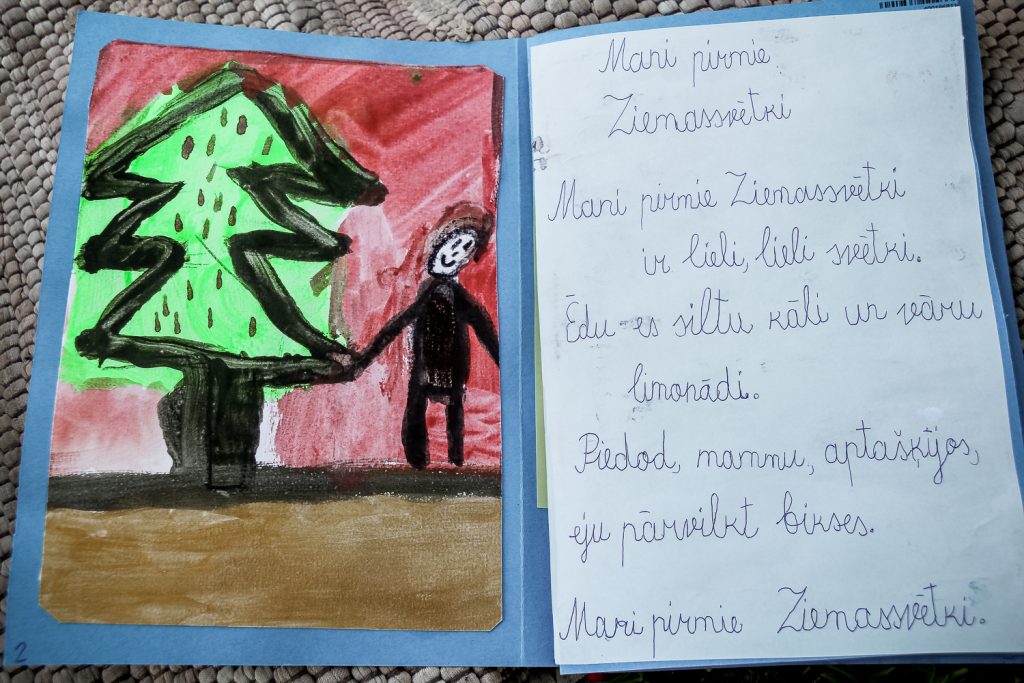 Mani pirmie
Ziemassvētki
Mani pirmie Ziemassvētki
ir lieli, lieli svētki.
Ēdu es siltu kāli un vāru
limonādi.
Piedod, mammu, aptašķījos,
eju pārvilkt bikses.
Mani pirmie Ziemassvētki.
2